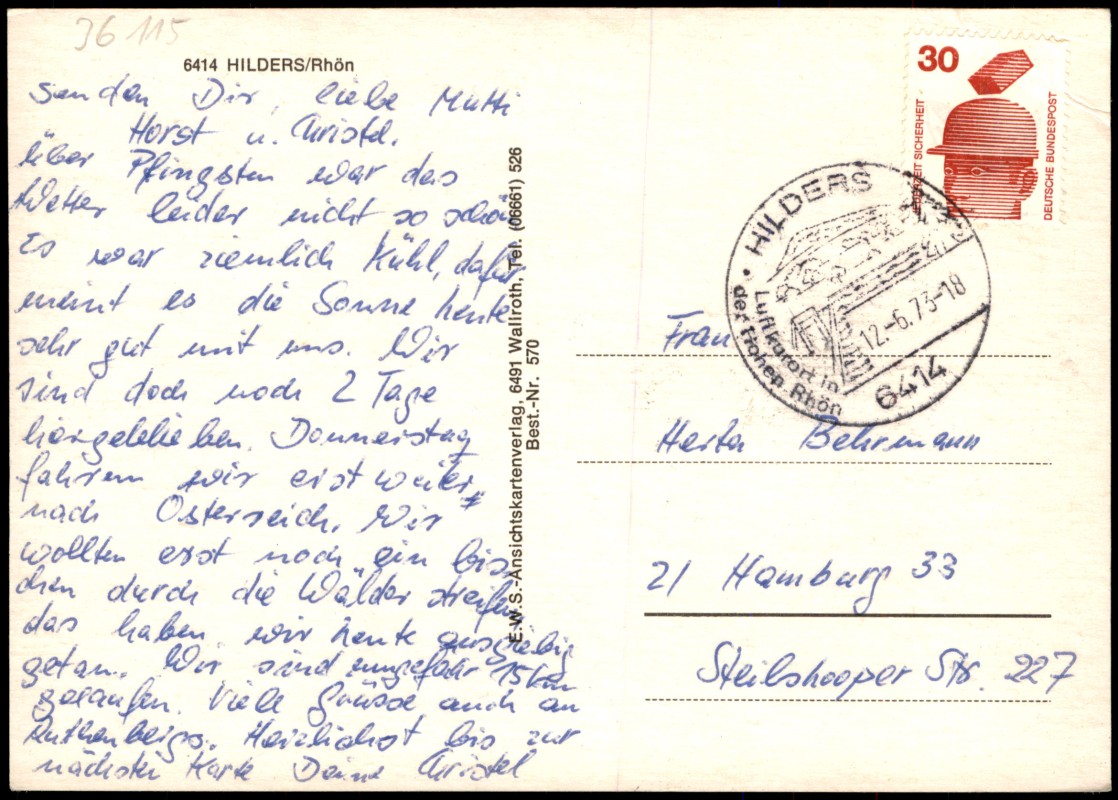 36 115
6414 HILDERS/Rhön
senden Dir, liebe Mutti
Horst u. Christel.
Über Pfingsten war das
Wetter leider nicht so schön
Es war ziemlich kühl, dafür
meint es die Sonne heute
sehr gut mit uns. Wir
sind doch noch 2 Tage
hiergeblieben. Donnerstag
fahren wir erst weiter
nach Österreich. Wir
wollten erst noch ein biss
chen durch die Wälder streifen
das haben wir heute ausgiebig
getan. Wir sind ungefähr 15 km
gelaufen. Viele Grüsse auch an
Ruthenbergs. Herzlichst bis zur
nächsten Karte Deine Christel
E.W.S.-Ansichtskartenverlag, 6491 Wallroth, Tel. (06661) 526
Best.-Nr. 570
30
SICHERHEIT
DEUTSCHE BUNDESPOST
HILDERS
12.-6.73-18
6414
Luftkurort in
der Hohen Rhön
Frau
Herta Behrmann
21 Hamburg 33
Steilshooper Str. 227